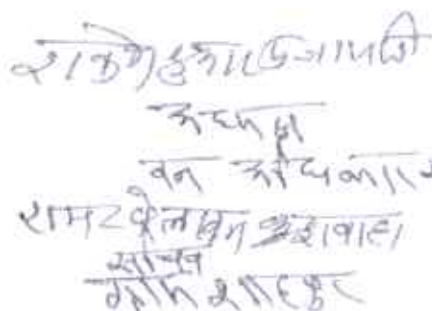 राकेश कुमार प्रजापति
अध्यक्ष
वन अधिकार
रामखेलावन कुशवाहा
सचिव
ग्राम शाहपुर